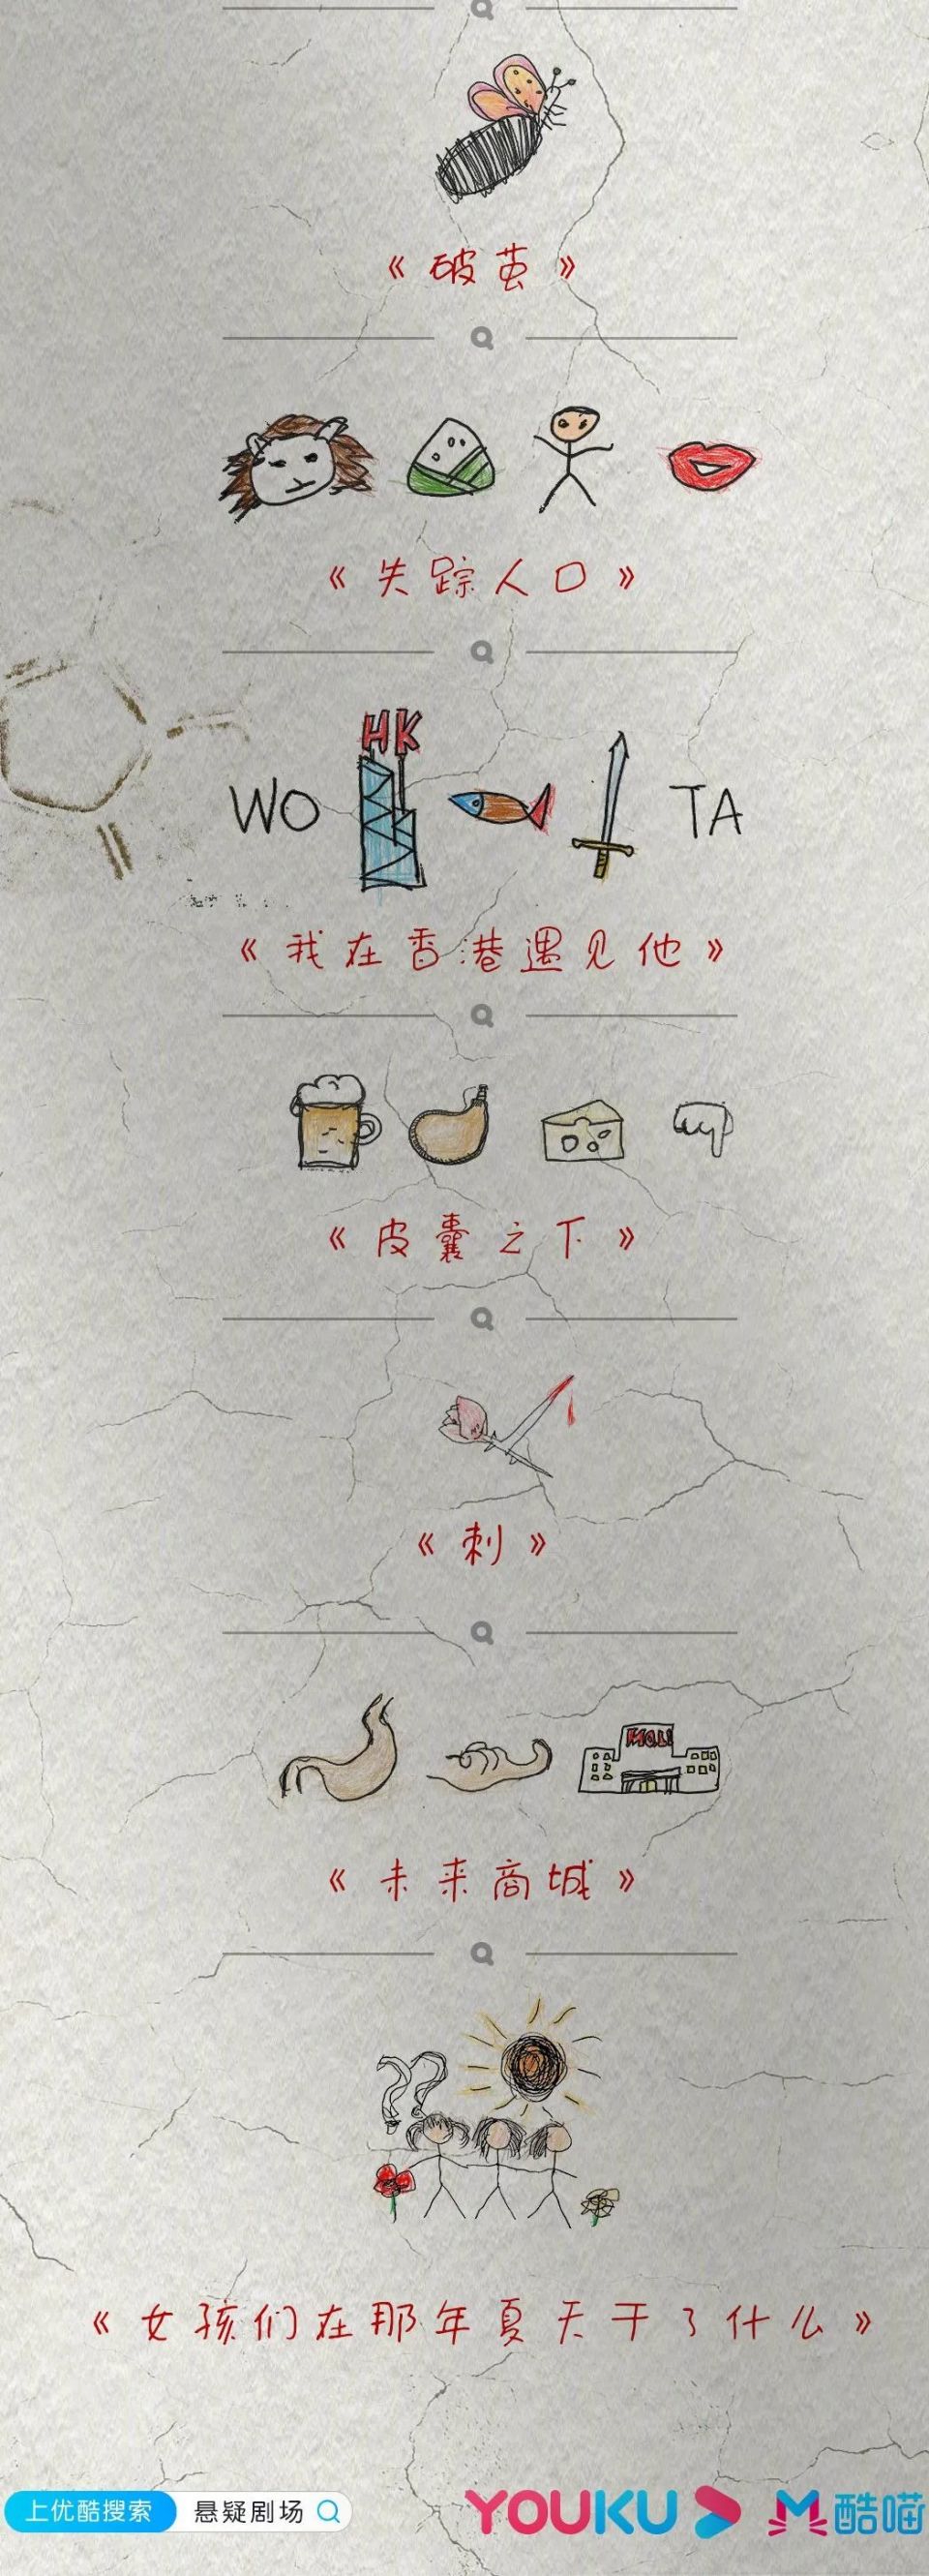 《破茧》
《失踪人口》
HK
WO
TA
《我在香港遇见他》
《皮囊之下》
《刺》
MALL
《未来商城》
??
《女孩们在那年夏天干了什么》
上优酷搜索 悬疑剧场
YOUKU 酷喵